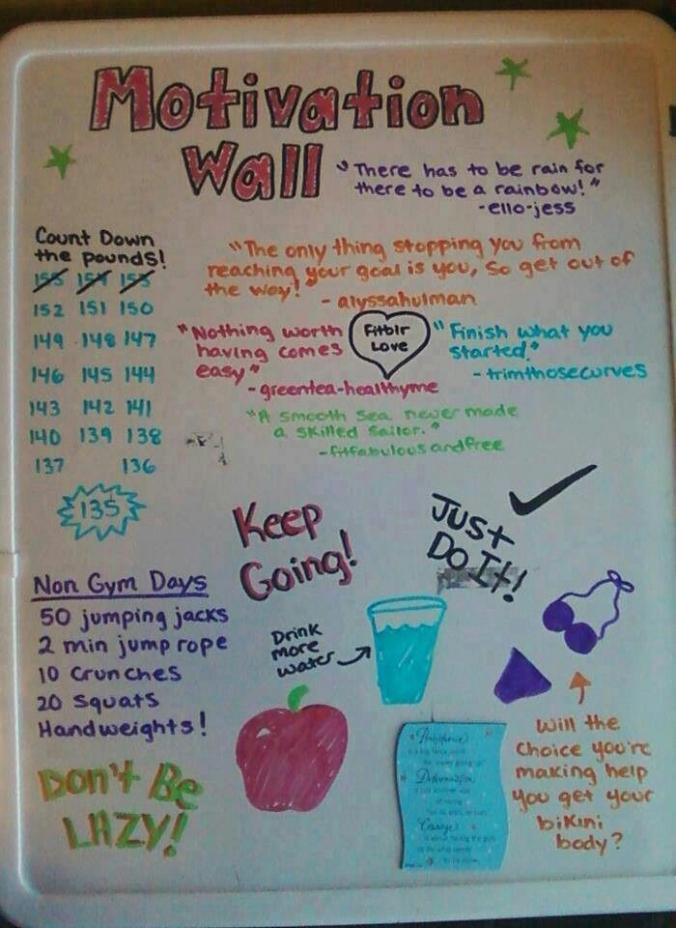 Motivation
Wall
"There has to be rain for
there to be a rainbow!"
-ello-jess
Count Down
the pounds!
155 154 153
152 151 150
149 148 147
146 145 144
143 142 141
140 139 138
137 136
135
"The only thing stopping you from
reaching your goal is you, so get out of
the way!"
- alyssahulman
"Nothing worth
having comes
easy"
- greentea-healthyme
Fitblr
Love
"Finish what you
started"
- trimthosecurves
"A smooth sea never made
a skilled sailor."
-fitfabulousandfree
Keep
Going!
Just
Do It!
Non Gym Days
50 jumping jacks
2 min jump rope
10 crunches
20 squats
Handweights!
Drink
more
water
Don't Be
LAZY!
Determination
Courage
Will the
choice you're
making help
you get your
bikini
body?